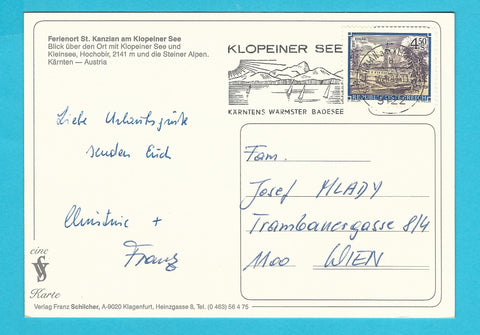 Ferienort St. Kanzian am Klopeiner See
Blick über den Ort mit Klopeiner See und
Kleinsee, Hochobir, 2141 m und die Steiner Alpen.
Kärnten — Austria
KLOPEINER SEE
KÄRNTENS WÄRMSTER BADESEE
4.50
REPUBLIK ÖSTERREICH
9122
Liebe Urlaubsgrüße
senden Euch
Christine +
Franz
Fam.
Josef MLADY
Trambauergasse 8/4
1100 WIEN
eine
VS
Karte
Verlag Franz Schilcher, A-9020 Klagenfurt, Heinzgasse 8, Tel. (0 463) 56 4 75